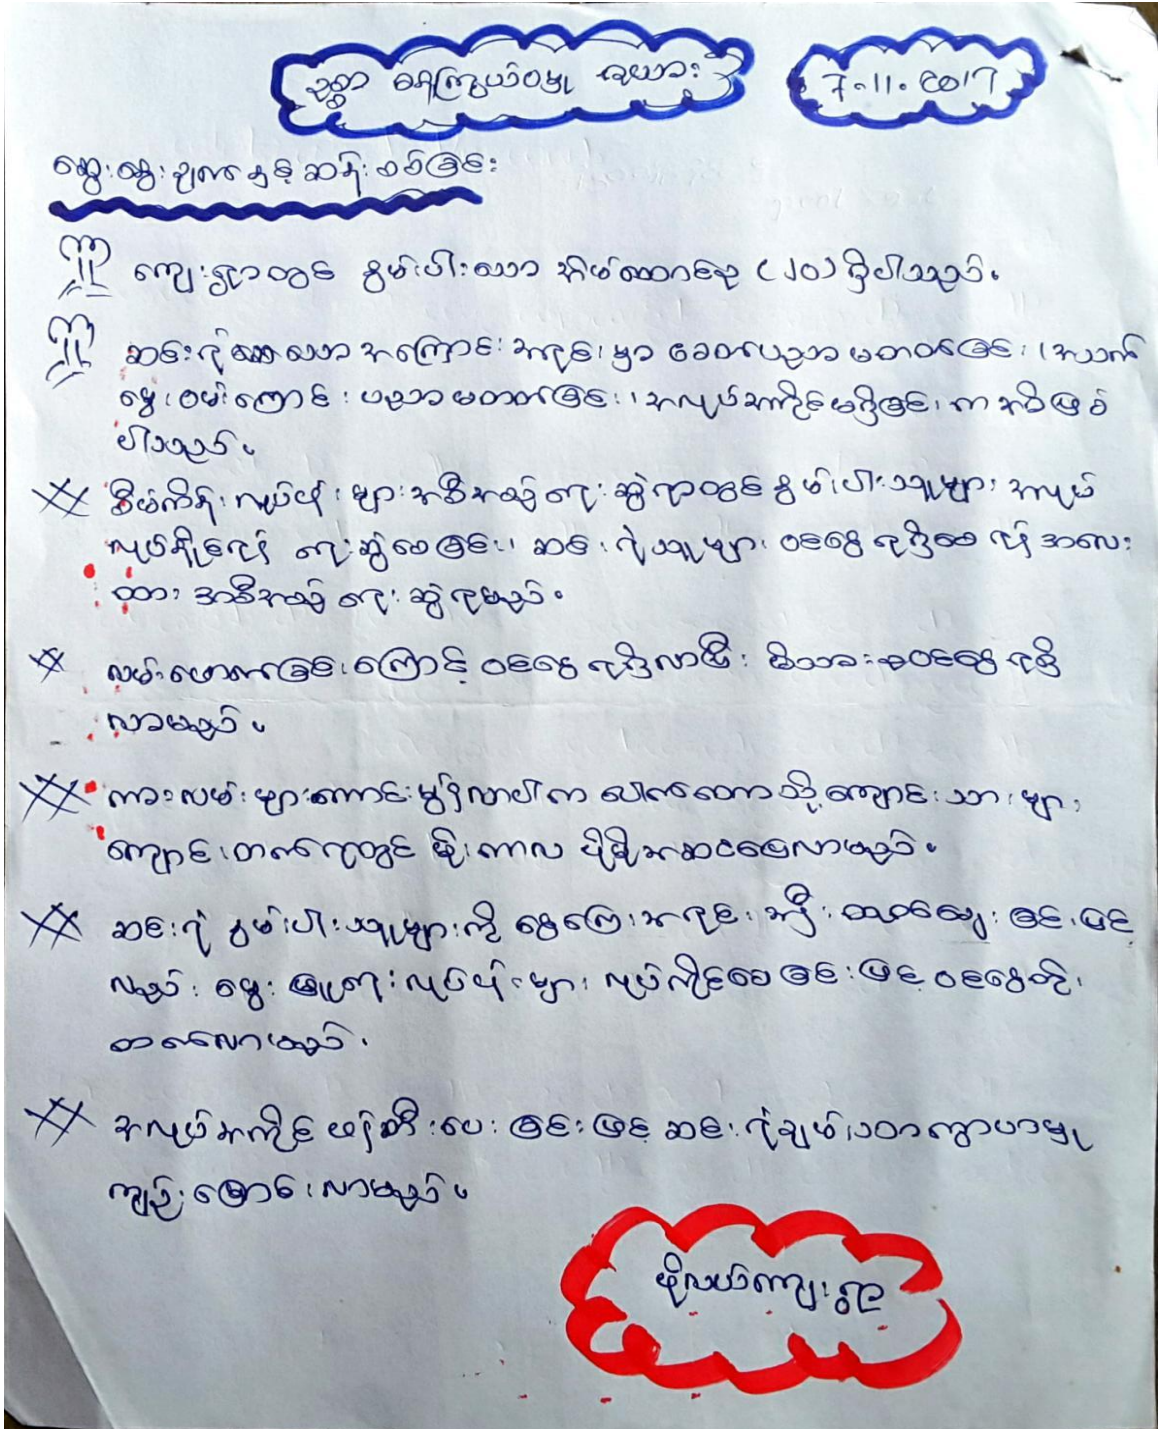 ဥစ္စာ ဓနကြွယ်ဝမှု ဇယား
7.11.2017
ဆွေးနွေးချက်နှင့်ဆန်းစစ်ခြင်း
ကျေးရွာတွင် နွမ်းပါးသော အိမ်ထောင်စု (၂၀) ရှိပါသည်။
ဆင်းရဲရသော အကြောင်းအရင်းမှာ ခေတ်ပညာမတတ်ခြင်း၊ အသက်
မွေးဝမ်းကြောင်းပညာမတတ်ခြင်း၊ အလုပ်အကိုင်မရှိခြင်းက အဓိဖြစ်
ပါသည်။
စီမံကိန်းလုပ်ငန်းများအစီအစဉ်ရေးဆွဲရာတွင်နွမ်းပါးသူများ အလုပ်
လုပ်ကိုင်ရန် ရေးဆွဲပေးခြင်း၊ ဆင်းရဲသူများ ဝင်ငွေရရှိစေရန်အလေး
ထား အစီအစဉ်ရေးဆွဲရမည်။
လမ်းဖောက်ခြင်းကြောင့် ဝင်ငွေရရှိလာပြီး မိသားစုဝင်ငွေရရှိ
လာမည်။
ကားလမ်းများကောင်းမွန်လာပါက တို့ကျောင်းသားများ
ကျောင်းတက်ရာတွင် မိုးကာလ ပိုမိုအဆင်ပြေလာမည်။
ဆင်းရဲနွမ်းပါးသူများကို ငွေကြေးအရင်းအနှီးထုတ်ချေးခြင်းဖြင့်
လည်း မွေးမြူရေးလုပ်ငန်းများ လုပ်ကိုင်စေခြင်းဖြင့် ဝင်ငွေတိုး
တက်လာမည်။
အလုပ်အကိုင်ဖန်တီးပေးခြင်းဖြင့် ဆင်းရဲချမ်းသာကွာဟမှု
ကျဉ်းမြောင်းလာမည်။
ဖိုလယ်ကျေးရွာ